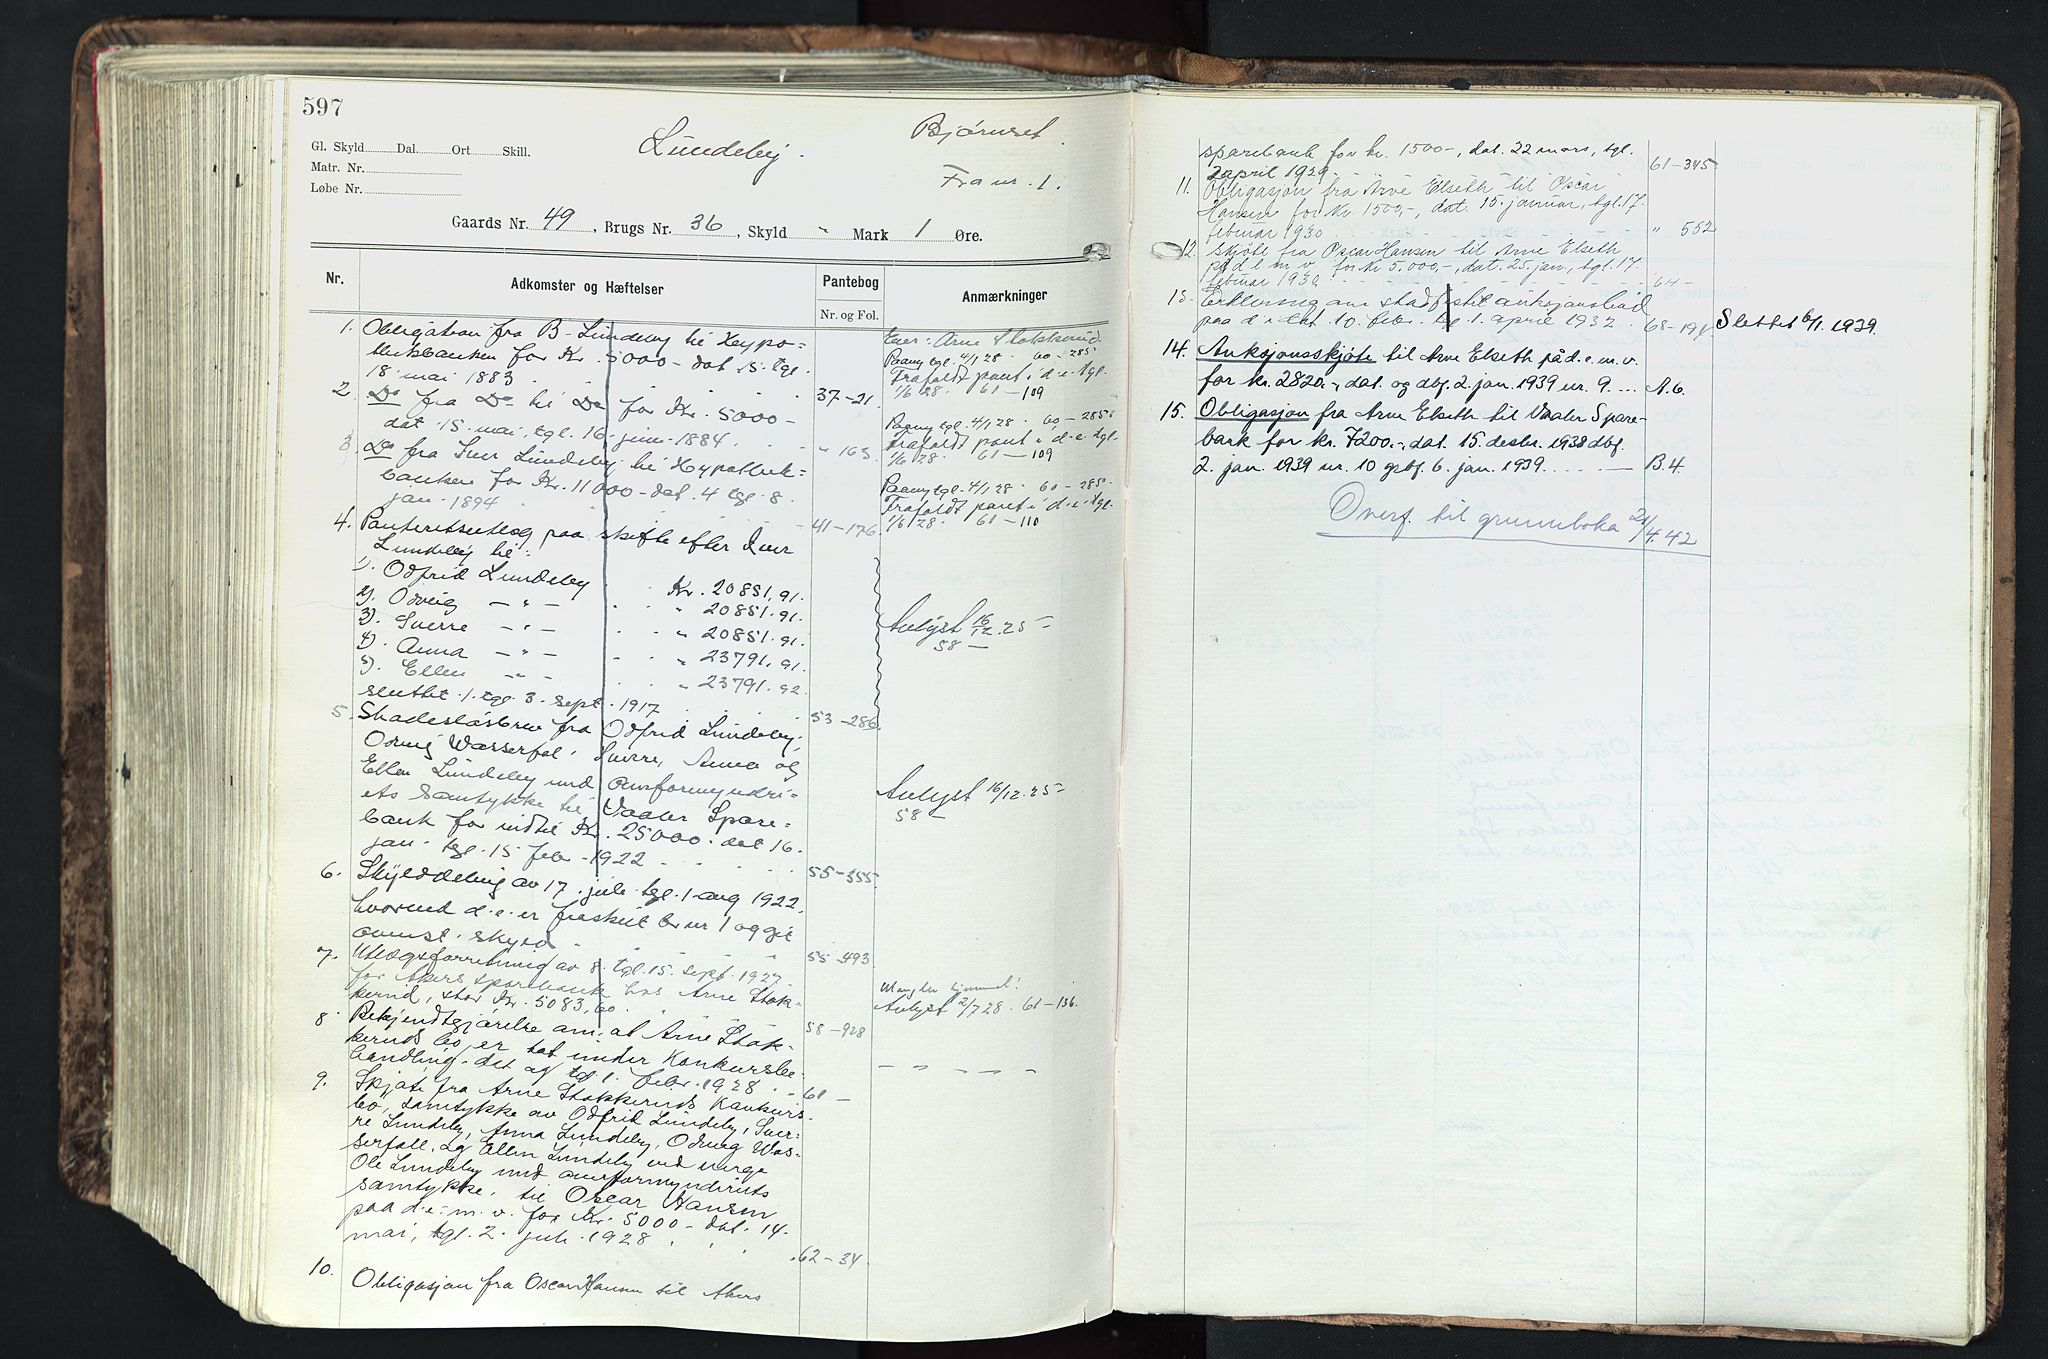 597
Gl. Skyld Dal. Ort Skill.
Matr. Nr.
Løbe Nr.
Lundeby.
Bjørnset
Fra nr. 1.
Gaards Nr. 49, Brugs Nr. 36, Skyld " Mark 1 Øre.
Nr. Adkomster og Hæftelser Pantebog Anmærkninger
Nr. og Fol.
1. Obligation fra B. Lundeby til Hypo-
thekbanken for Kr. 5000 - dat 15. tgl.
18. mai 1883.
37-21.
Eier: Arne Stokkerud.
Paany tgl. 4/1 28. 60-285
Frafaldt pant i d. e. tgl.
1/6 28. 61-109
2. Do fra Do til Do for Kr. 5000-
dat 15. mai, tgl. 16. juni 1884.
" 163.
Paany tgl. 4/1 28. 60-285
Frafaldt pant i d. e. tgl.
1/6 28. 61-109
3. Do fra Iver Lundeby til Hypothek-
banken for Kr. 11000 - dat. 4 tgl. 8.
jan. 1894
41-176
Paany tgl. 4/1 28. 60-285.
Frafaldt pant i d. e. tgl.
1/6 28. 61-110
4. Panteretsutlæg paa skifte efter Iver
Lundeby til:
1). Odfrid Lundeby Kr. 20851,91.
2). Odveig - " - " 20851.91.
3). Sverre - " - " 20851.91.
4). Anna - " - " 23791.91.
5). Ellen - " - " 23791.92.
sluttet 1. tgl. 3. sept. 1917
53-286.
Avlyst 16/12.25
58-
5. Skadesløsbrev fra Odfrid Lundeby,
Odveig Wasserfal, Sverre, Anna og
Ellen Lundeby med overformyndri-
ets samtykke til Vaaler Spare-
bank for indtil Kr. 25000. dat 16.
jan. tgl. 15. febr. 1922
55-355.
Avlyst 16/12.25
58-
6. Skylddeling av 17. juli tgl. 1 aug 1922.
hvorved d. e. er fraskilt br nr 1 og git
ovenst. skyld
55-493
7. Utlægsforretning av 8. tgl. 15. sept. 1927
for Akers sparebank hos Arne Stok-
kerud, stor Kr. 5083,60
58-928
Mangler hjemmel!
Avlyst 2/7 28. 61-136.
8. Bekjendtgjørelse om at Arne Stok-
keruds bo er tat under Konkursbe-
handling. dat og tgl 1. febr. 1928
61-
9. Skjøte fra Arne Stokkeruds Konkurs-
bo, samtykke av Odfrid Lundeby, Sver-
re Lundeby, Anna Lundeby, Odveig Was-
serfall, og Ellen Lundeby ved verge
Ole Lundeby med overformynderiets
samtykke, til Oscar Hansen
paa d. e. m. v. for Kr. 5000 - dat. 14.
mai, tgl. 2. juli 1928
62-34
10. Obligasjon fra Oscar Hansen til Akers
sparebank for kr. 1500-, dat. 22 mars, tgl.
2 april 1929.
61-345
11. Obligasjon fra Arve Elseth til Oscar
Hansen for Kr. 1500,-, dat. 15. januar, tgl. 17.
februar 1930
" 552
12. Skjøte fra Oscar Hansen til Arne Elseth
på d. e. m. v. for Kr 5.000,-, dat. 25. jan., tgl. 17.
februar 1930
64-
13. Erklæring om stadfestet auksjonsbud
paa d. e. dat. 10. febr. tgl. 1. april 1932.
68-194
Slettet 6/1. 1939.
14. Auksjonsskjøte til Arne Elseth på d. e. m. v.
for kr. 2820.-, dat. og dbf. 2. jan. 1939 nr. 9. ... A.6.
15. Obligasjon fra Arne Elseth til Vaaler Spare-
bank for kr. 7200.-, dat. 15. desbr. 1938 dbf.
2. jan. 1939 nr. 10 grbf. 6. jan. 1939. B.4.
Overf. til grunnboka 21/4.42